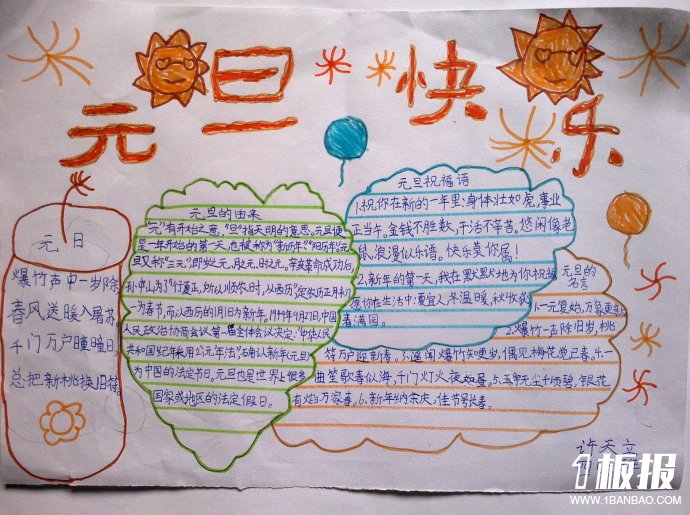 元旦快乐
元日
爆竹声中一岁除
春风送暖入屠苏
千门万户曈曈日
总把新桃换旧符
元旦的由来
"元"有开始之意,"旦"指天明的意思。元旦便
是一年开始的第一天,也被称为"新历年""阳历年"。元
旦又称"三元",即岁之元,月之元,时之元。辛亥革命成功后,
孙中山为了"行夏正,所以顺农时,从西历",定农历正月初
一为春节,而以西历的1月1日为新年。1949年9月27日,中国
人民政治协商会议第一届全体会议决定:"中华人民
共和国纪年采用公元年法",
为中国的法定节日。元旦也是世界上很多
国家或地区的法定假日。
元旦祝福语
1.祝你在新的一年里:身体壮如虎,事业
正当午。金钱不胜数,干活不辛苦。悠闲像老
鼠,浪漫似乐谱。快乐莫你属!
2.新年的第一天,我在默默地为你祝福
愿你在生活中:夏宜人,冬温暖,秋收获
春满园。
元旦的
名言
1.一元复始,万象更新
2.爆竹一声除旧岁,桃
符万户迎新春。3.遥闻爆竹知更岁,偶见梅花觉已春。4.一
曲笙歌春似海,千门灯火夜如昼。5.玉宇无尘千顷碧,银花
有焰万家春。6.新年纳余庆,佳节号长春。
许天立
1板报
WWW.1BANBAO.COM